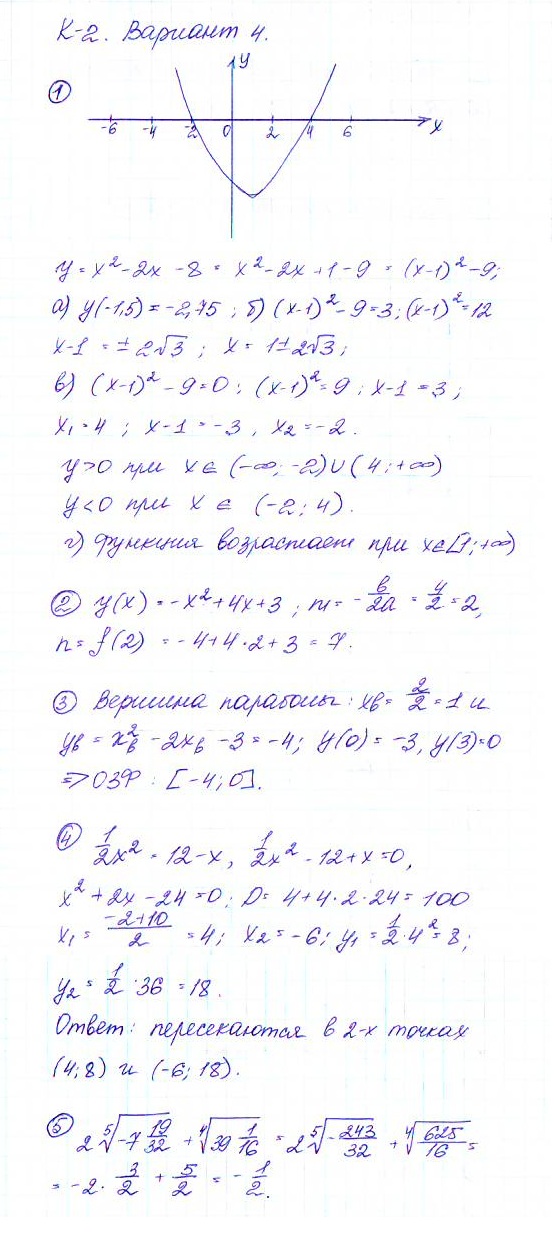 К-2. Вариант 4.
① y
-6 -4 -2 0 2 4 6 x
y = x² - 2x - 8 = x² - 2x + 1 - 9 = (x-1)² - 9;
а) y(-1,5) = -2,75; б) (x-1)² - 9 = 3; (x-1)² = 12
x-1 = ±2√3; x = 1±2√3;
в) (x-1)² - 9 = 0; (x-1)² = 9; x-1 = 3;
x₁ = 4; x-1 = -3, x₂ = -2.
y>0 при x ∈ (-∞; -2)∪(4; +∞)
y<0 при x ∈ (-2; 4).
г) функция возрастает при x∈[1; +∞)
② y(x) = -x² + 4x + 3; m = -b/2a = 4/2 = 2,
n = f(2) = -4 + 4·2 + 3 = 7.
③ Вершина параболы: xв = 2/2 = 1 и
yв = xв² - 2xв - 3 = -4; y(0) = -3, y(3) = 0
=> ОЗФ: [-4; 0].
④ 1/2x² = 12 - x, 1/2x² - 12 + x = 0,
x² + 2x - 24 = 0; D = 4 + 4·2·24 = 100
x₁ = (-2+10)/2 = 4; x₂ = -6; y₁ = 1/2·4² = 8;
y₂ = 1/2·36 = 18.
Ответ: пересекаются в 2-х точках
(4; 8) и (-6; 18).
⑤ 2⁵√(-7 19/32) + ⁴√(39 1/16) = 2⁵√(-243/32) + ⁴√(625/16) =
= -2·3/2 + 5/2 = -1/2.